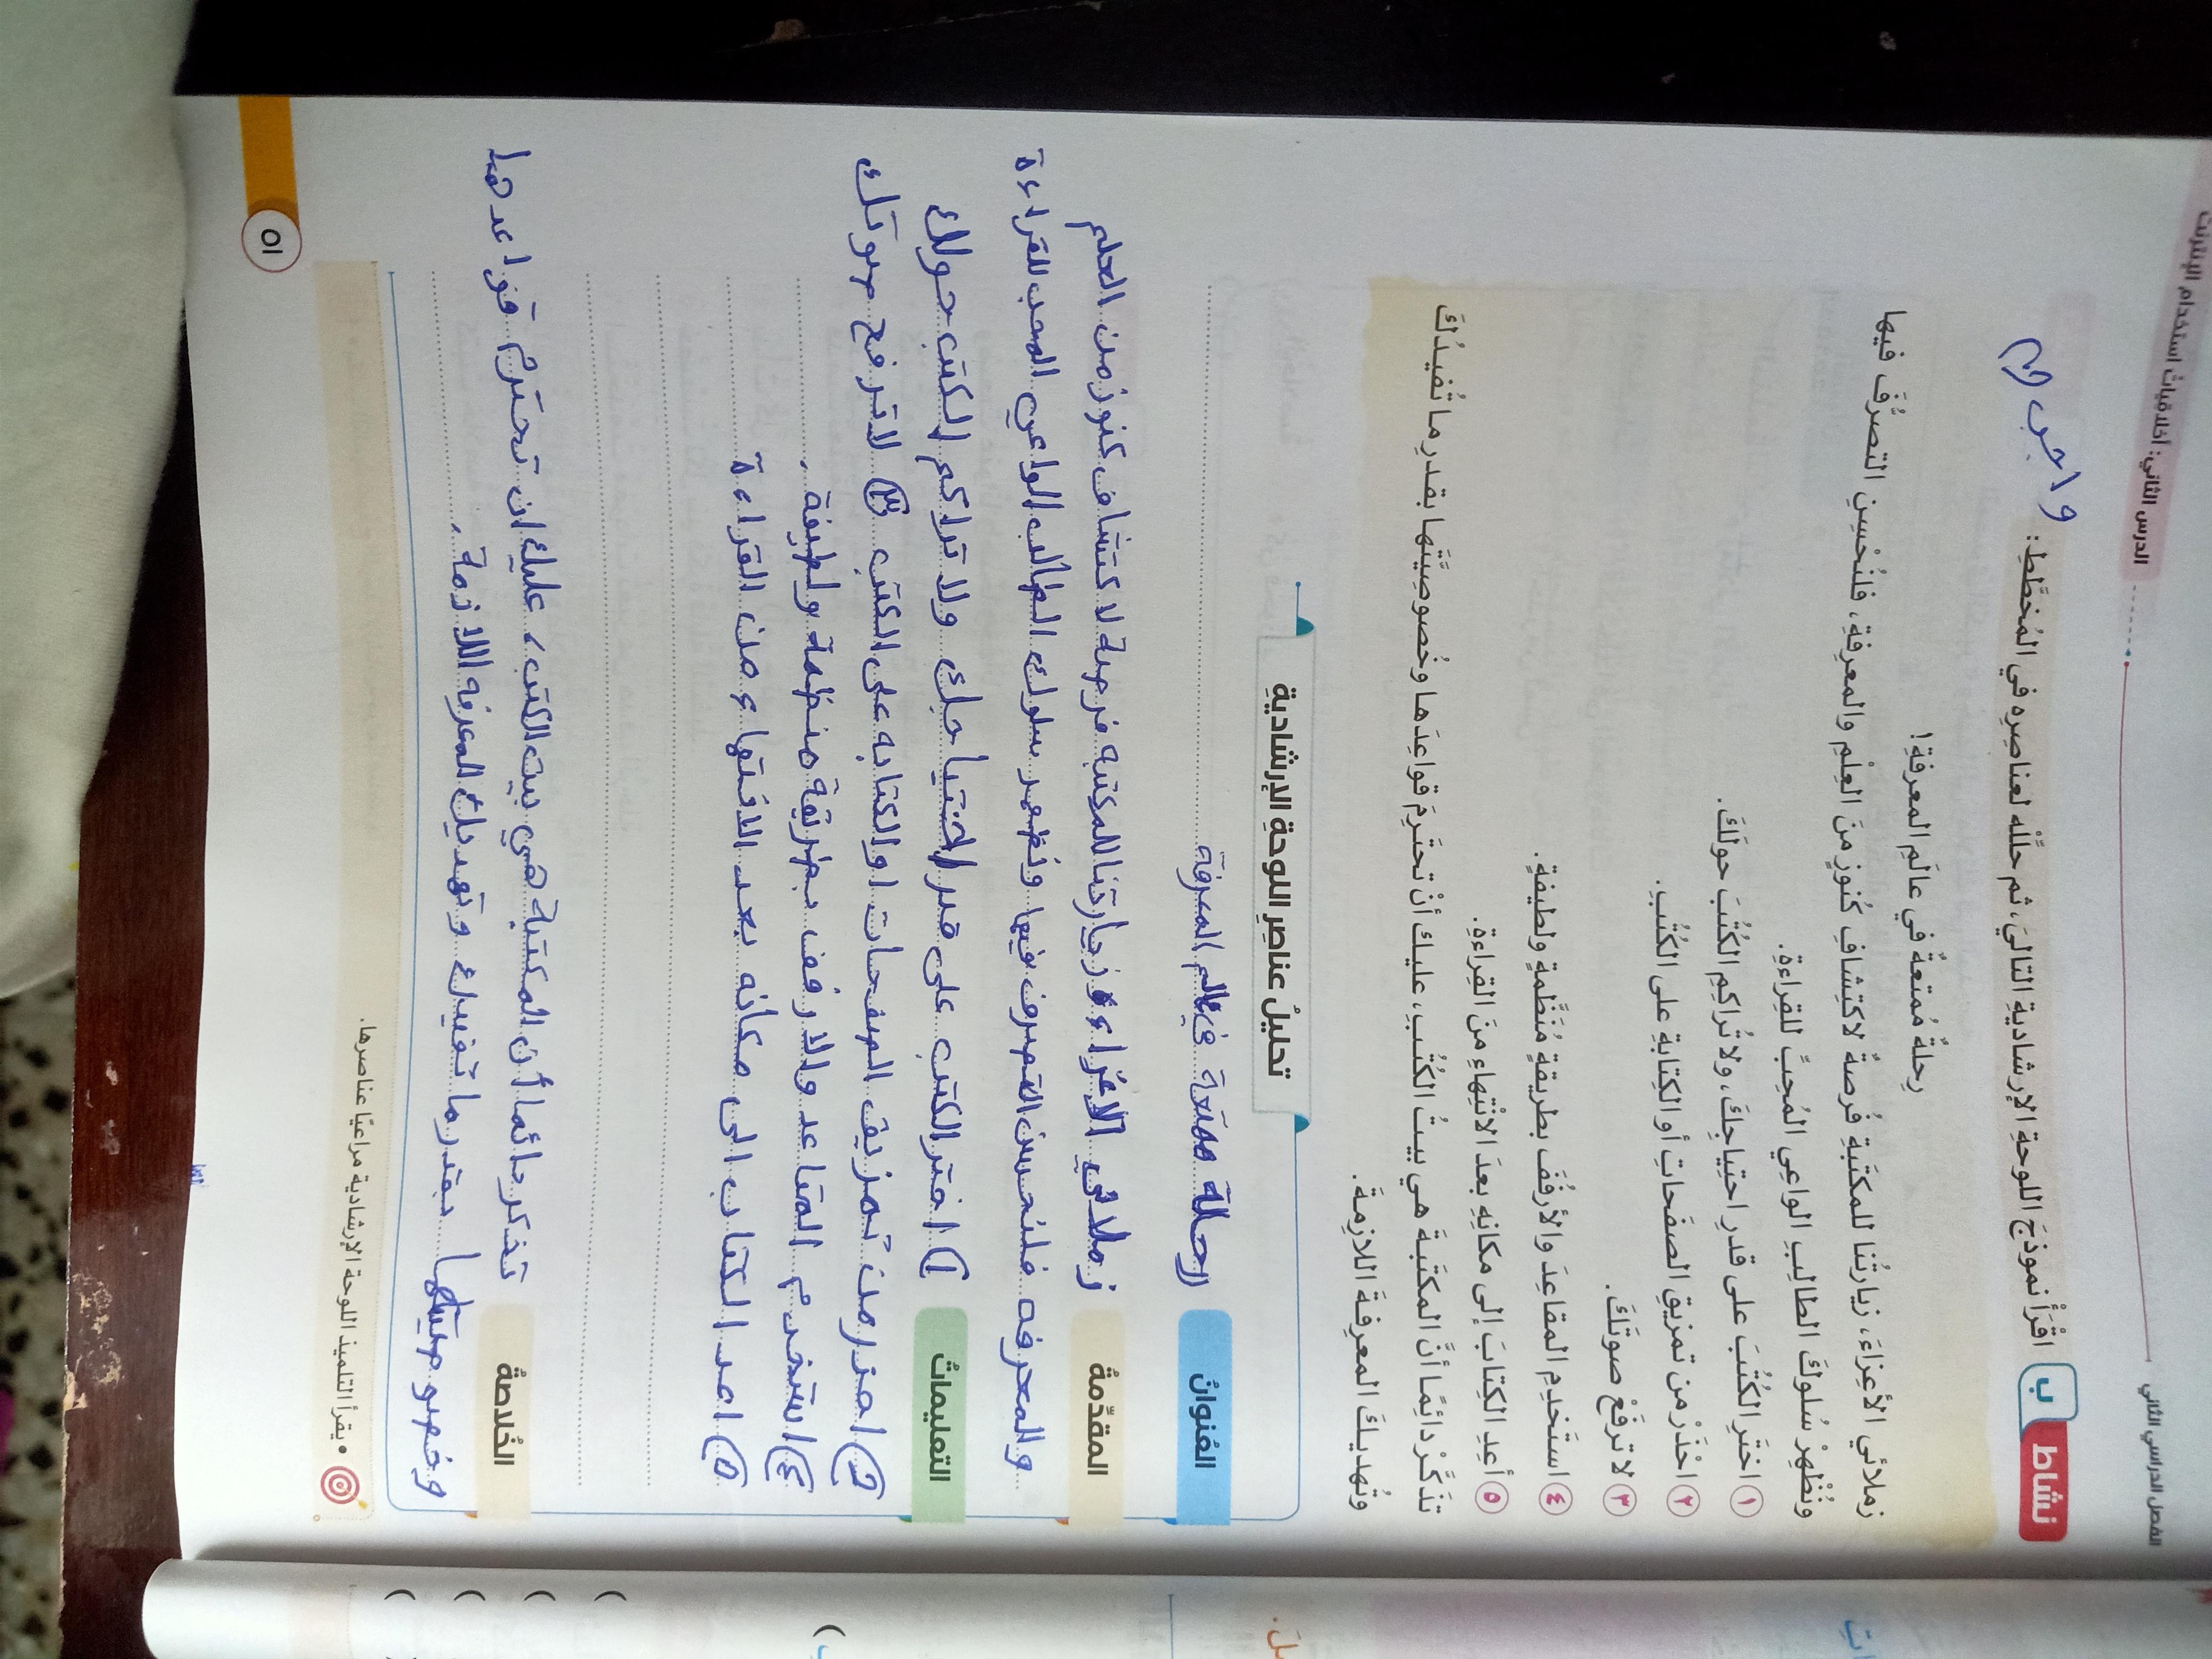 الفصل الدراسي الثاني
الدرس الثاني: أخلاقيات استخدام الإنترنت
نشاط ب اقْرَأْ نموذجَ اللوحةِ الإرشاديةِ التاليَ، ثم حلِّلْه لعناصرِه في المُخطَّطِ: واجب
رِحلةٌ مُمتعةٌ في عالَمِ المعرفةِ!
زملائي الأعِزاءَ، زيارتُنا للمكتَبةِ فُرصةٌ لاكتِشافِ كُنوزٍ منَ العِلْمِ والمعرِفةِ، فلنُحْسِنِ التصرُّفَ فيها
ونُظْهِرْ سُلوكَ الطالِبِ الواعِي المُحِبِّ للقِراءةِ.
١ اختَرِ الكُتُبَ على قدرِ احتِياجِكَ، ولا تُراكِمِ الكُتُبَ حولَكَ.
٢ احْذَرْ من تمزيقِ الصفَحاتِ أو الكِتابةِ على الكُتُبِ.
٣ لا ترفَعْ صوتَكَ.
٤ استَخدِمِ المقاعِدَ والأرفُفَ بطريقةٍ مُنَظَّمةٍ ولطيفةٍ.
٥ أعِدِ الكِتابَ إلى مكانِهِ بعدَ الانْتِهاءِ مِنَ القِراءةِ.
تذَكَّرْ دائِمًا أنَّ المكتَبةَ هي بيتُ الكُتُبِ، عليكَ أنْ تحتَرِمَ قواعِدَها وخُصوصِيَّتَها بقدرِ ما تُفيدُكَ
وتُهديكَ المعرِفةَ اللازِمةَ.
تحليلُ عناصِرِ اللوحةِ الإرشاديةِ
العُنوانُ رحلة ممتعة في عالم المعرفة
المقدِّمةُ زملائي الاعزاء زيارتنا للمكتبه فرصة لاكتشاف كنوز من العلم
والمعرفه فلنحسن التصرف فيها ونظهر سلوك الطالب الواعي المحب للقراءة
التعليماتُ ١) اختر الكتب على قدر احتياجك ولا تراكم الكتب حولك
٢) احذر من تمزيق الصفحات او الكتابه على الكتب ٣ لا ترفع صوتك
٤) استخدم المقاعد والارفف بطريقة منظمة ولطيفة.
٥) اعد الكتاب الى مكانه بعد الانتهاء من القراءة
الخُلاصةُ تذكر دائما أن المكتبة هي بيت الكتب، عليك ان تحترم قواعدها
وخصوصيتها بقدر ما تفيدك وتهديك المعرفه اللازمة.
• يقرأ التلميذ اللوحة الإرشادية مراعيًا عناصرها.
٥١